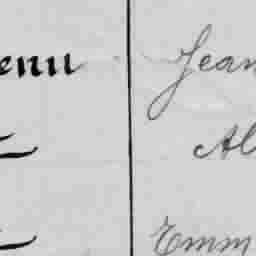 enu Jean
Al
Emm